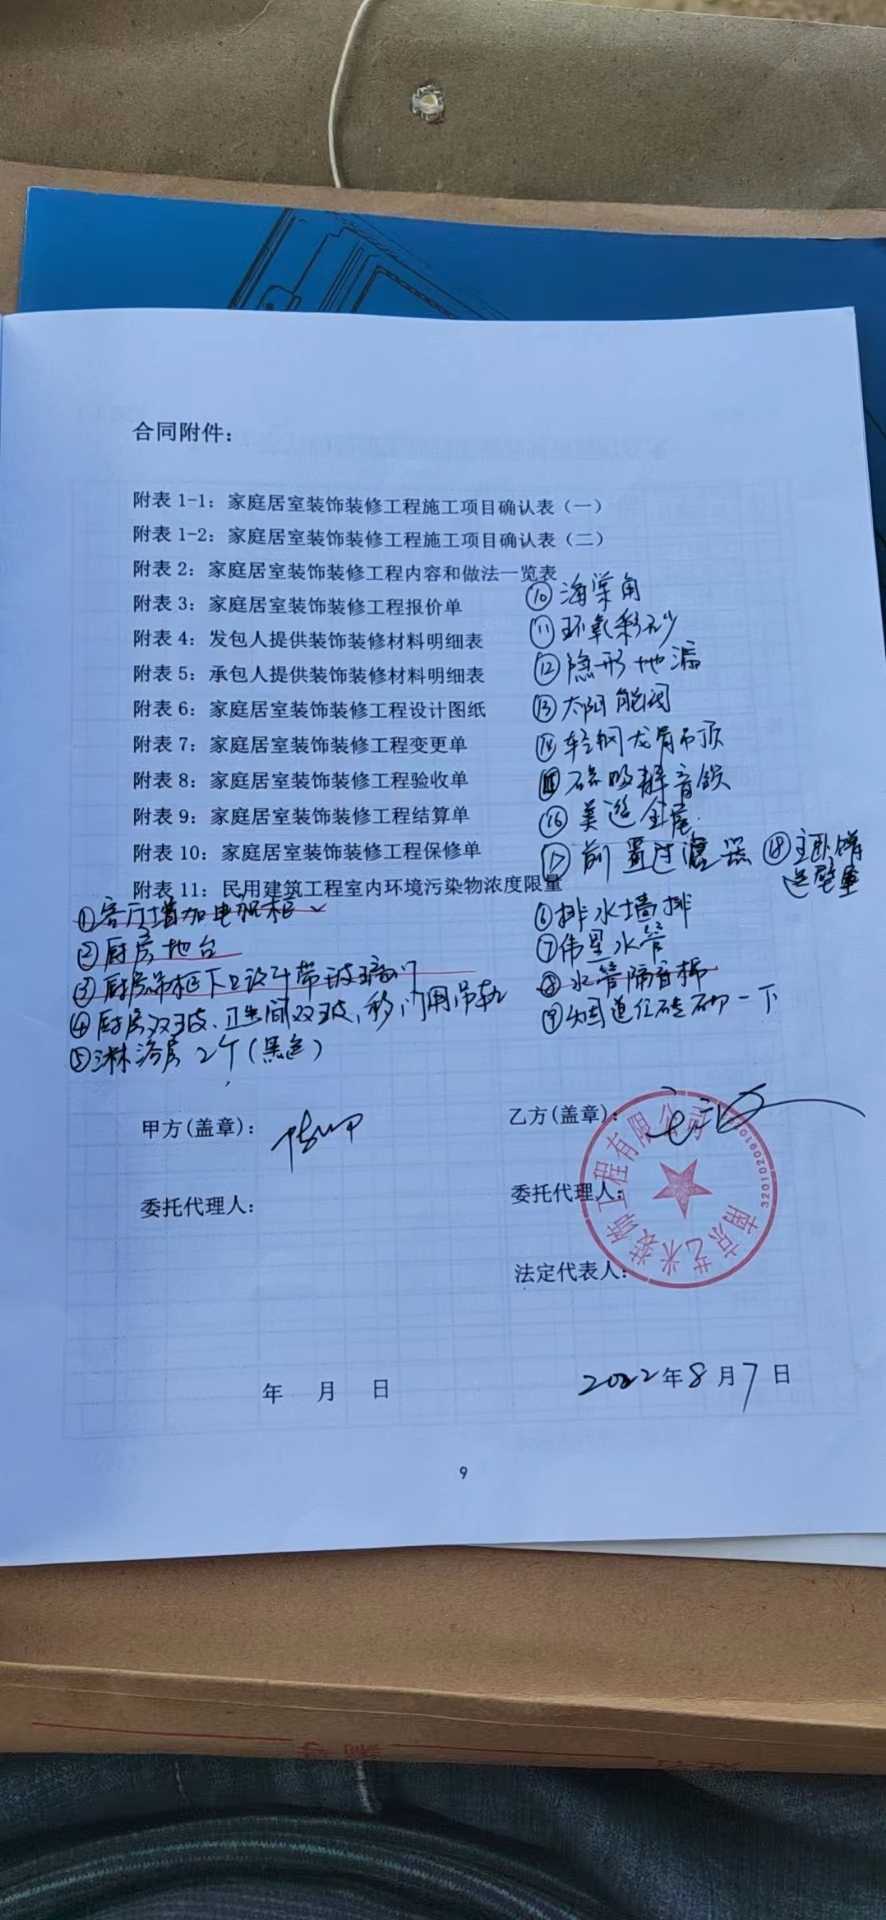 合同附件：
附表 1-1：家庭居室装饰装修工程施工项目确认表（一）
附表 1-2：家庭居室装饰装修工程施工项目确认表（二）
附表 2：家庭居室装饰装修工程内容和做法一览表
附表 3：家庭居室装饰装修工程报价单
附表 4：发包人提供装饰装修材料明细表
附表 5：承包人提供装饰装修材料明细表
附表 6：家庭居室装饰装修工程设计图纸
附表 7：家庭居室装饰装修工程变更单
附表 8：家庭居室装饰装修工程验收单
附表 9：家庭居室装饰装修工程结算单
附表 10：家庭居室装饰装修工程保修单
附表 11：民用建筑工程室内环境污染物浓度限量
①客厅增加电视柜
②厨房地台
③厨房吊柜下口设计带玻璃门
④厨房双玻、卫生间双玻、移门用吊轨
⑤淋浴房 2个（黑色）
⑥排水墙排
⑦伟星水管
⑧水管隔音棉
⑨ 砖 切一下
⑩海棠角
⑪环氧彩砂
⑫隐形地漏
⑬太阳能阀
⑭轻钢龙骨吊顶
磁吸静音锁
⑯美 全屋
⑰前置过滤器
⑱主卧 送壁
甲方(盖章)：
乙方(盖章)：
委托代理人：
委托代理人：
法定代表人：
南京艺术装饰工程有限公司
年 月 日
2022年8月7日
9